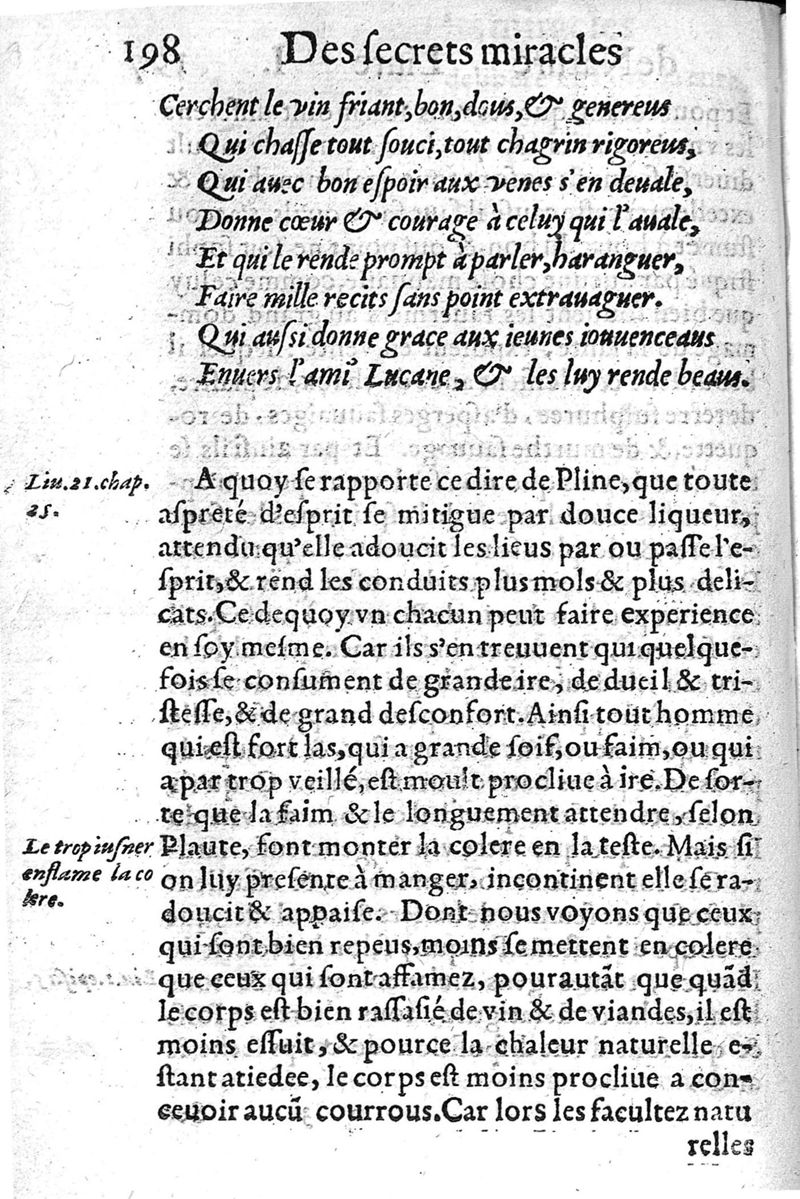 198 Des ſecrets miracles
Cerchent le vin friant, bon, dous, & genereus
Qui chaſſe tout ſouci, tout chagrin rigoreus,
Qui auec bon eſpoir aux venes s'en deuale,
Donne cœur & courage à celuy qui l'auale,
Et qui le rende prompt à parler, haranguer,
Faire mille recits ſans point extrauaguer.
Qui auſſi donne grace aux ieunes iouuenceaus
Enuers l'ami Lucane, & les luy rende beaus.
Liu. 21. chap.
25.
A quoy ſe rapporte ce dire de Pline, que toute
aſpreté d'eſprit ſe mitigue par douce liqueur,
attendu qu'elle adoucit les lieus par ou paſſe l'e-
ſprit, & rend les conduits plus mols & plus deli-
cats. Ce dequoy vn chacun peut faire experience
en ſoy meſme. Car ils s'en treuuent qui quelque-
fois ſe conſument de grande ire, de dueil & tri-
ſteſſe, & de grand deſconfort. Ainſi tout homme
qui eſt fort las, qui a grande ſoif, ou faim, ou qui
a par trop veillé, eſt moult procliue à ire. De ſor-
te que la faim & le longuement attendre, ſelon
Le trop iuſner
enflame la co
lere.
Plaute, font monter la colere en la teſte. Mais ſi
on luy preſente à manger, incontinent elle ſe ra-
doucit & appaiſe. Dont nous voyons que ceux
qui ſont bien repeus, moins ſe mettent en colere
que ceux qui ſont affamez, pourautāt que quād
le corps eſt bien raſſaſié de vin & de viandes, il eſt
moins eſſuit, & pource la chaleur naturelle e-
ſtant atiedee, le corps eſt moins procliue a con-
ceuoir aucū courrous. Car lors les facultez natu
relles